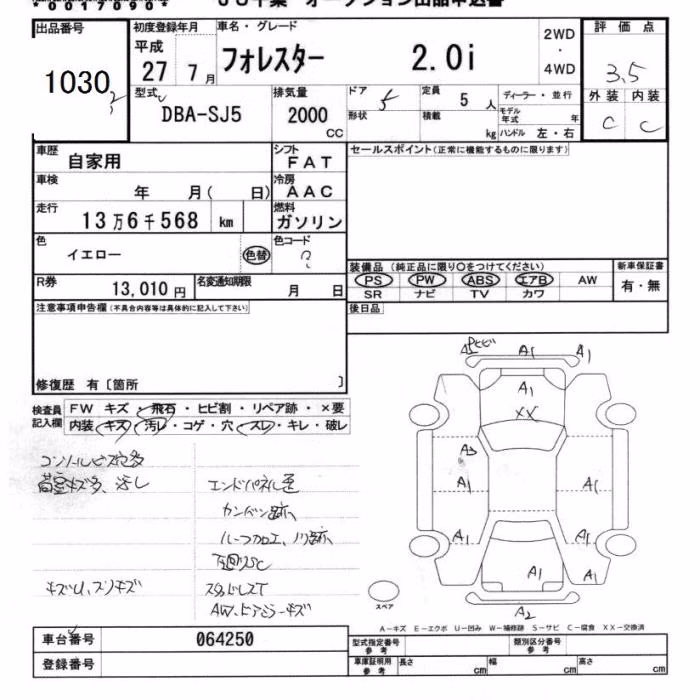 出品番号
1030
初度登録年月
平成
27 7月
車名・グレード
フォレスター 2.0i
2WD
・
4WD
評価点
3.5
外装 内装
C C
型式
DBA-SJ5
排気量
2000
CC
ドア 5
形状
定員 5 人
積載 kg
ディーラー・並行
モデル年式 年
ハンドル 左・右
車歴
自家用
シフト
FAT
車検
年 月( 日)
冷房
AAC
走行
13万6千568 km
燃料
ガソリン
色
イエロー
色替
色コード
?
R券
13,010 円
名変通知期限
月 日
セールスポイント(正常に機能するものに限ります)
装備品(純正品に限り○をつけてください)
PS PW ABS エアB AW
SR ナビ TV カワ
新車保証書
有・無
後日品
注意事項申告欄(不具合内容等は具体的に記入して下さい)
修復歴 有〔箇所 〕
検査員記入欄
FW キズ・飛石・ヒビ割・リペア跡・×要
内装 キズ・汚レ・コゲ・穴・スレ・キレ・破レ
荷室キズ多、汚レ
下回りSC
スタッドレスT
A1 A1
A1
XX
A3
A1 A1
A1 A1
A1 A1
A2
スペア
A－キズ E－エクボ U－凹み W－補修跡 S－サビ C－腐食 XX－交換済
車台番号
064250
登録番号
型式指定番号
参考
類別区分番号
参考
車庫証明用
参考
長さ cm
幅 cm
高さ cm